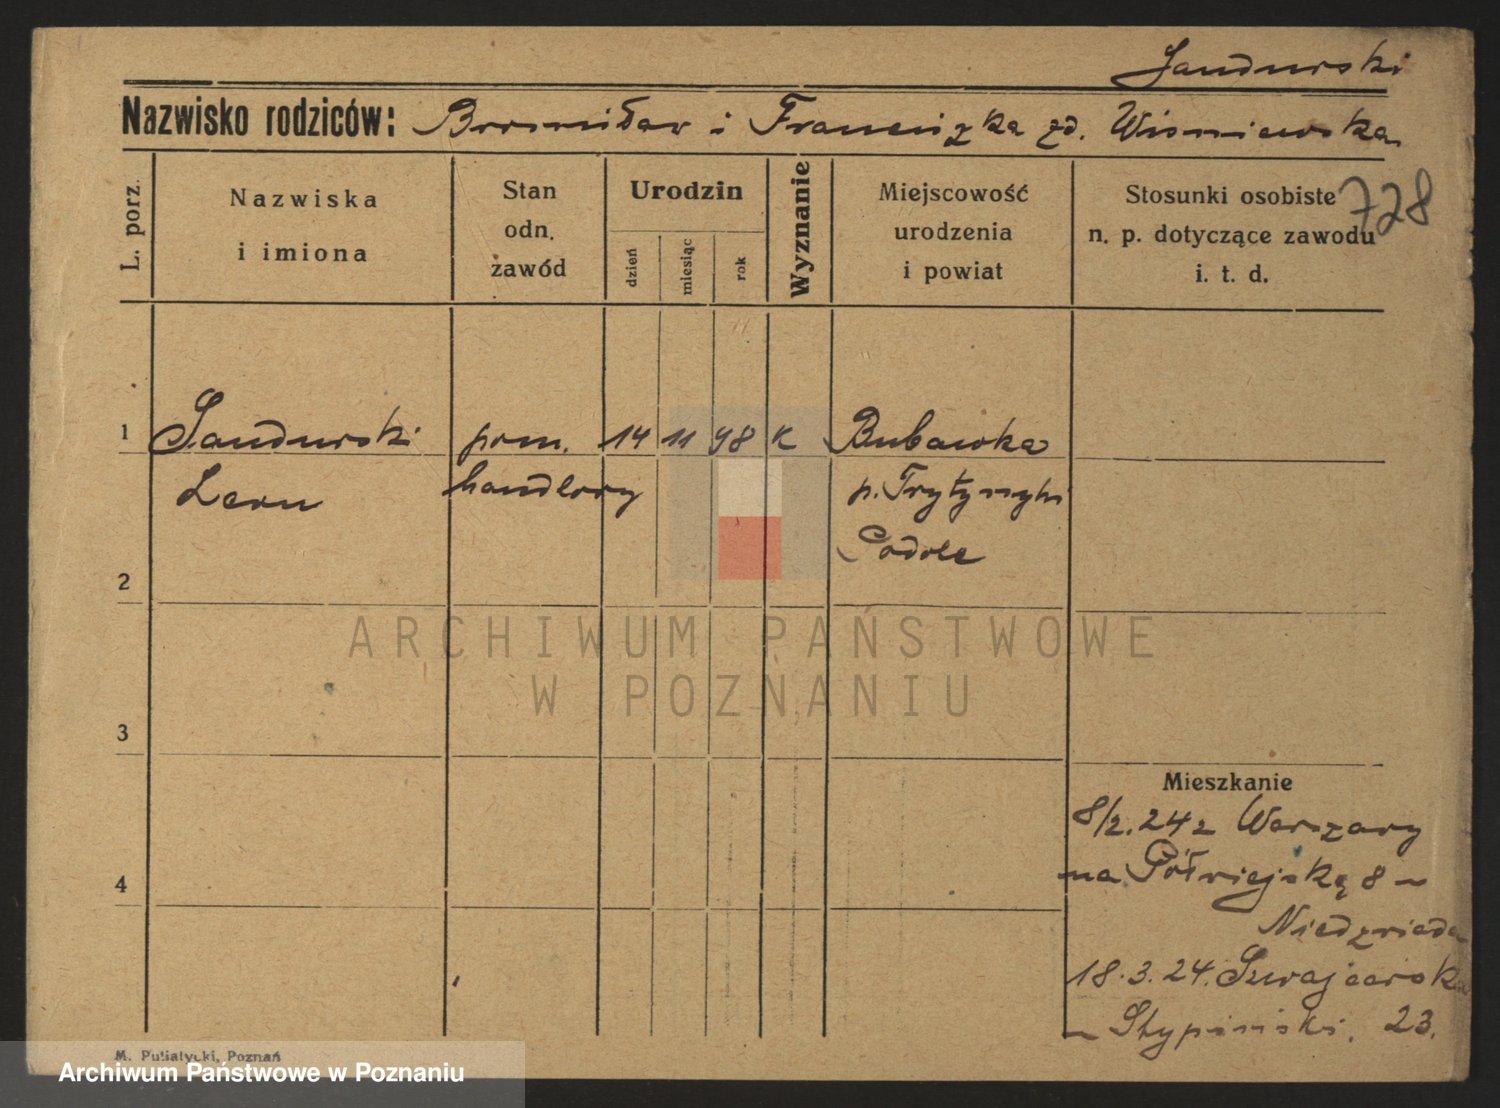 Sandurski
Nazwisko rodziców: Bronisław i Franciszka zd. Wiśniewska
728
L. porz.
Nazwiska
i imiona
Stan
odn.
zawód
Urodzin
dzień
miesiąc
rok
Wyznanie
Miejscowość
urodzenia
i powiat
Stosunki osobiste
n. p. dotyczące zawodu
i. t. d.
1 Sandurski pom. 14 11 98 K Bubawka
Leon handlowy p.
Podole
2
ARCHIWUM PAŃSTWOWE
W POZNANIU
3
Mieszkanie
8/2. 24 z Warszawy
na Półwiejską 8
4
18. 3. 24. Szwajcarska
Stypiński. 23.
M. Putiatycki, Poznań
Archiwum Państwowe w Poznaniu